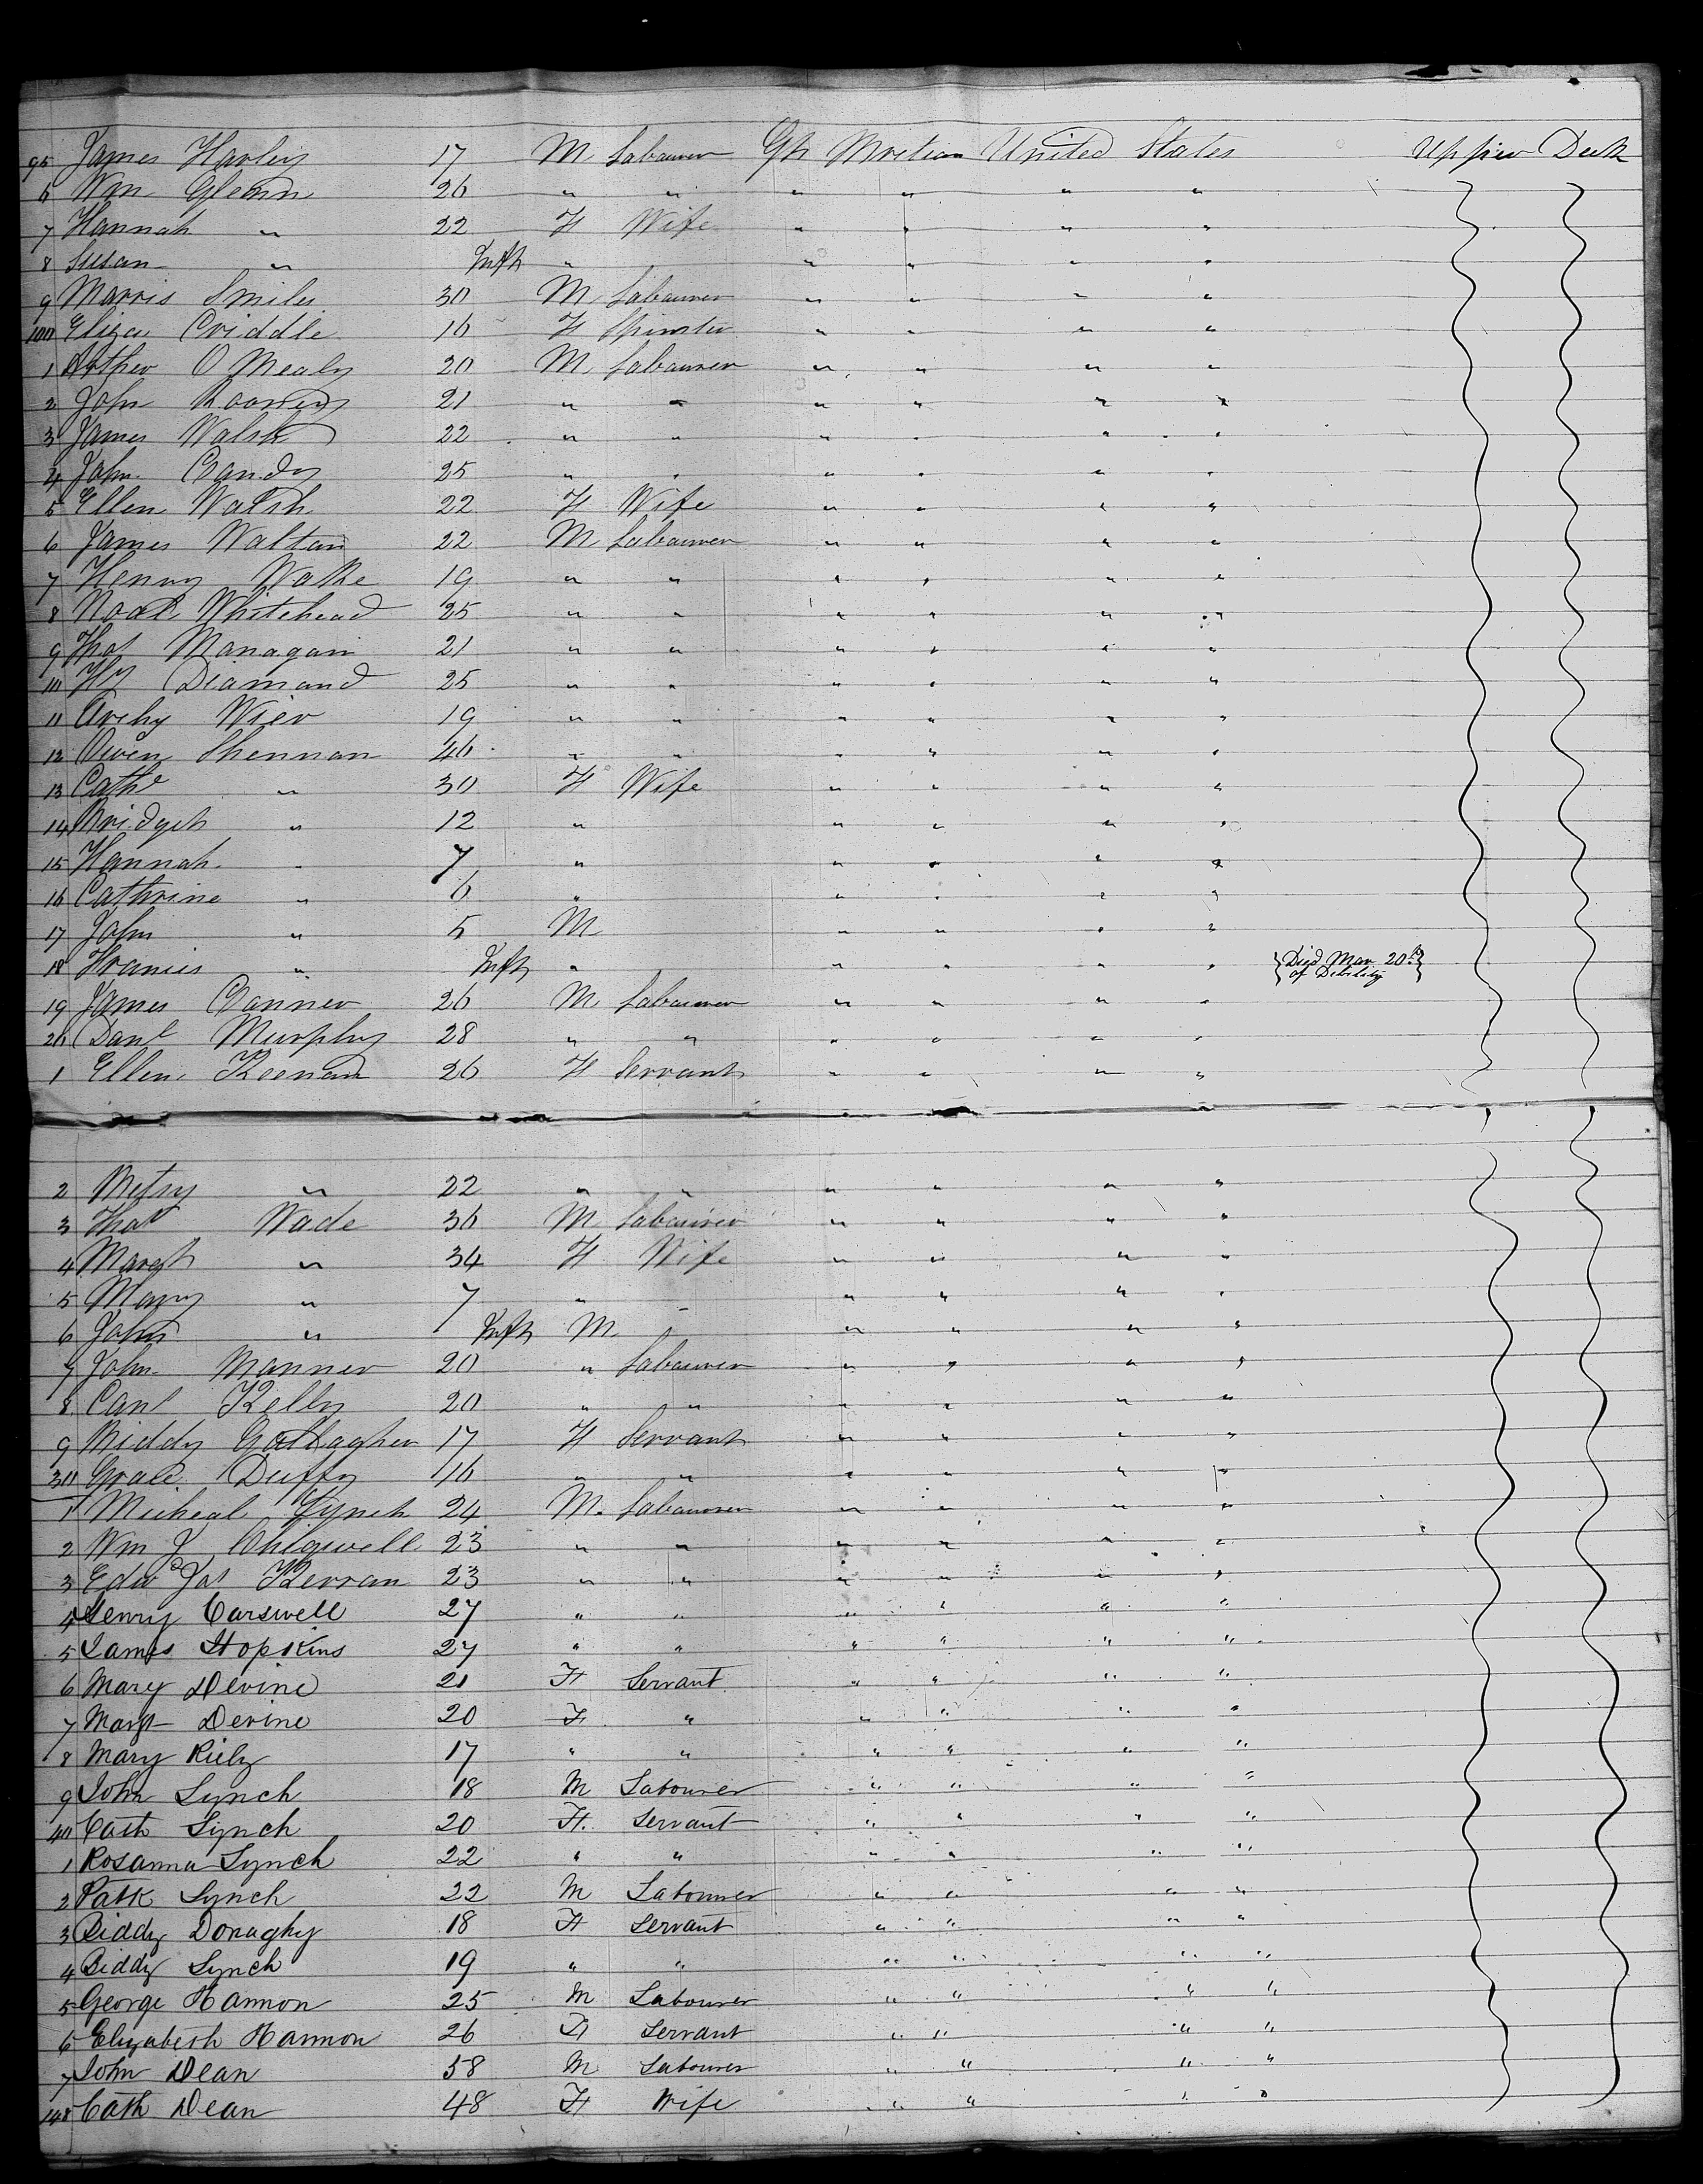 95 James Harley 17 M Labourer Gh Britian United States Upper Deck
6 Wm Glenn 26 " " " " " "
7 Hannah " 22 F Wife " " " "
8 Susan " Inft " " " " "
9 Morris Smiles 30 M Labourer " " " "
100 Eliza Criddle 16 F Spinster " " " "
1 Arther O Mealy 20 M Labourer " " " "
2 John Rooney 21 " " " " " "
3 James Walsh 22 " " " " " "
4 John Candy 25 " " " " " "
5 Ellen Walsh 22 F Wife " " " "
6 James Waltan 22 M Labourer " " " "
7 Henry Wake 19 " " " " " "
8 Noah Whitehead 25 " " " " " "
9 Thos Managan 21 " " " " " "
110 Hy Diamand 25 " " " " " "
11 Archy Wier 19 " " " " " "
12 Owen Shennan 46 " " " " " "
13 Cathe " 30 F Wife " " " "
14 Bridget " 12 " " " " "
15 Hannah " 7 " " " " "
16 Cathrine " 6 " " " " "
17 John " 5 M " " " "
18 Francis " Inft " " " " " Died Mar 20th
of Debility
19 James Conner 26 M Labourer " " " "
20 Danl Murphy 28 " " " " " "
1 Ellen Keenan 26 F Servant " " " "
2 Betsy " 22 " " " " " "
3 Thos Wade 36 M Labourer " " " "
4 Margt " 34 F Wife " " " "
5 Mary " 7 " " " " "
6 John " Inft M " " " "
7 John Manner 20 " Labourer " " " "
8 Kelly 20 " " " " " "
9 Biddy Gallagher 17 F Servant " " " "
30 Grace Duffy 16 " " " " " "
1 Micheal Lynch 24 M. Labourer " " " "
2 Wm J Chigwell 23 " " " " " "
3 Edwd Jas Kerran 23 " " " " " "
4 Henry Carswell 27 " " " " " "
5 James Hopkins 27 " " " " " "
6 Mary Devine 21 F Servant " " " "
7 Margt Devine 20 F " " " " "
8 Mary Riely 17 " " " " " "
9 John Lynch 18 M Labourer " " " "
40 Cath Lynch 20 F. Servant " " " "
1 Rosanna Lynch 22 " " " " " "
2 Patk Lynch 22 M Labourer " " " "
3 Biddy Donaghy 18 F Servant " " " "
4 Biddy Lynch 19 " " " " " "
5 George Hannon 25 M Labourer " " " "
6 Elizabeth Hannon 26 F Servant " " " "
7 John Dean 58 M Labourer " " " "
148 Cath Dean 48 F Wife " " " "